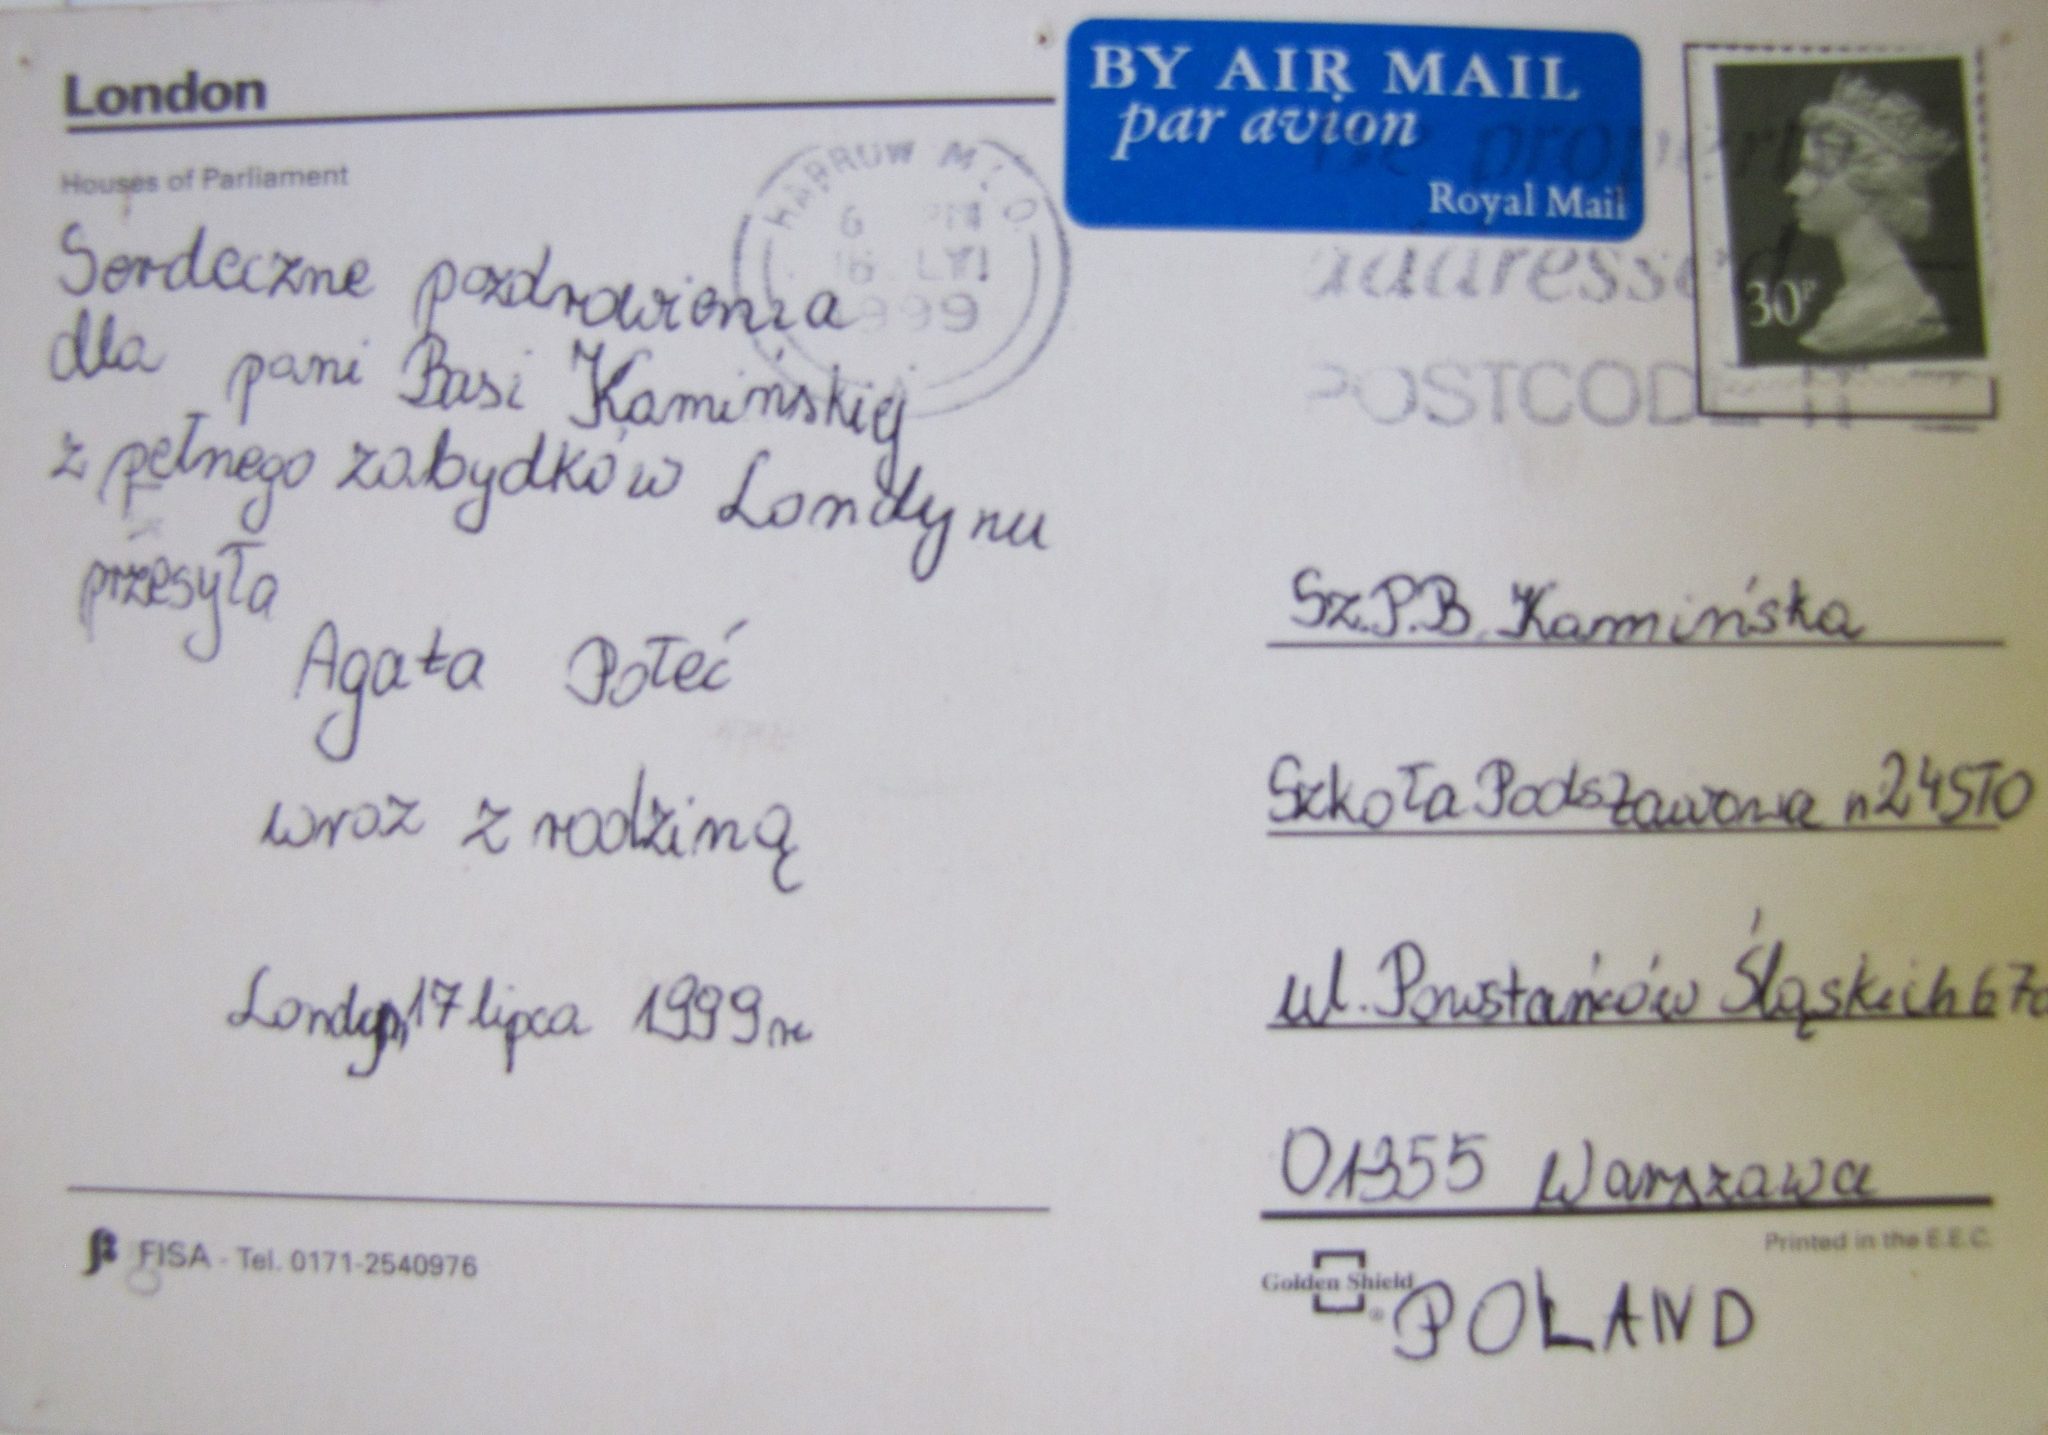 London
Houses of Parliament
Serdeczne pozdrowienia
dla pani Basi Kamińskiej
z pełnego zabydków Londynu
przesyła
Agata Połeć
wraz z rodziną
Londyn, 17 lipca 1999 r
FISA - Tel. 0171-2540976
BY AIR MAIL
par avion
Royal Mail
HARROW M.L.O.
6 PM
16 LYI
1999
be properly
addressed
POSTCODE IT
30P
Sz.P.B. Kamińska
Szkoła Podstawowa n 24 STO
ul. Powstańców Śląskich 67a
01355 Warszawa
Printed in the E.E.C.
Golden Shield ®
POLAND